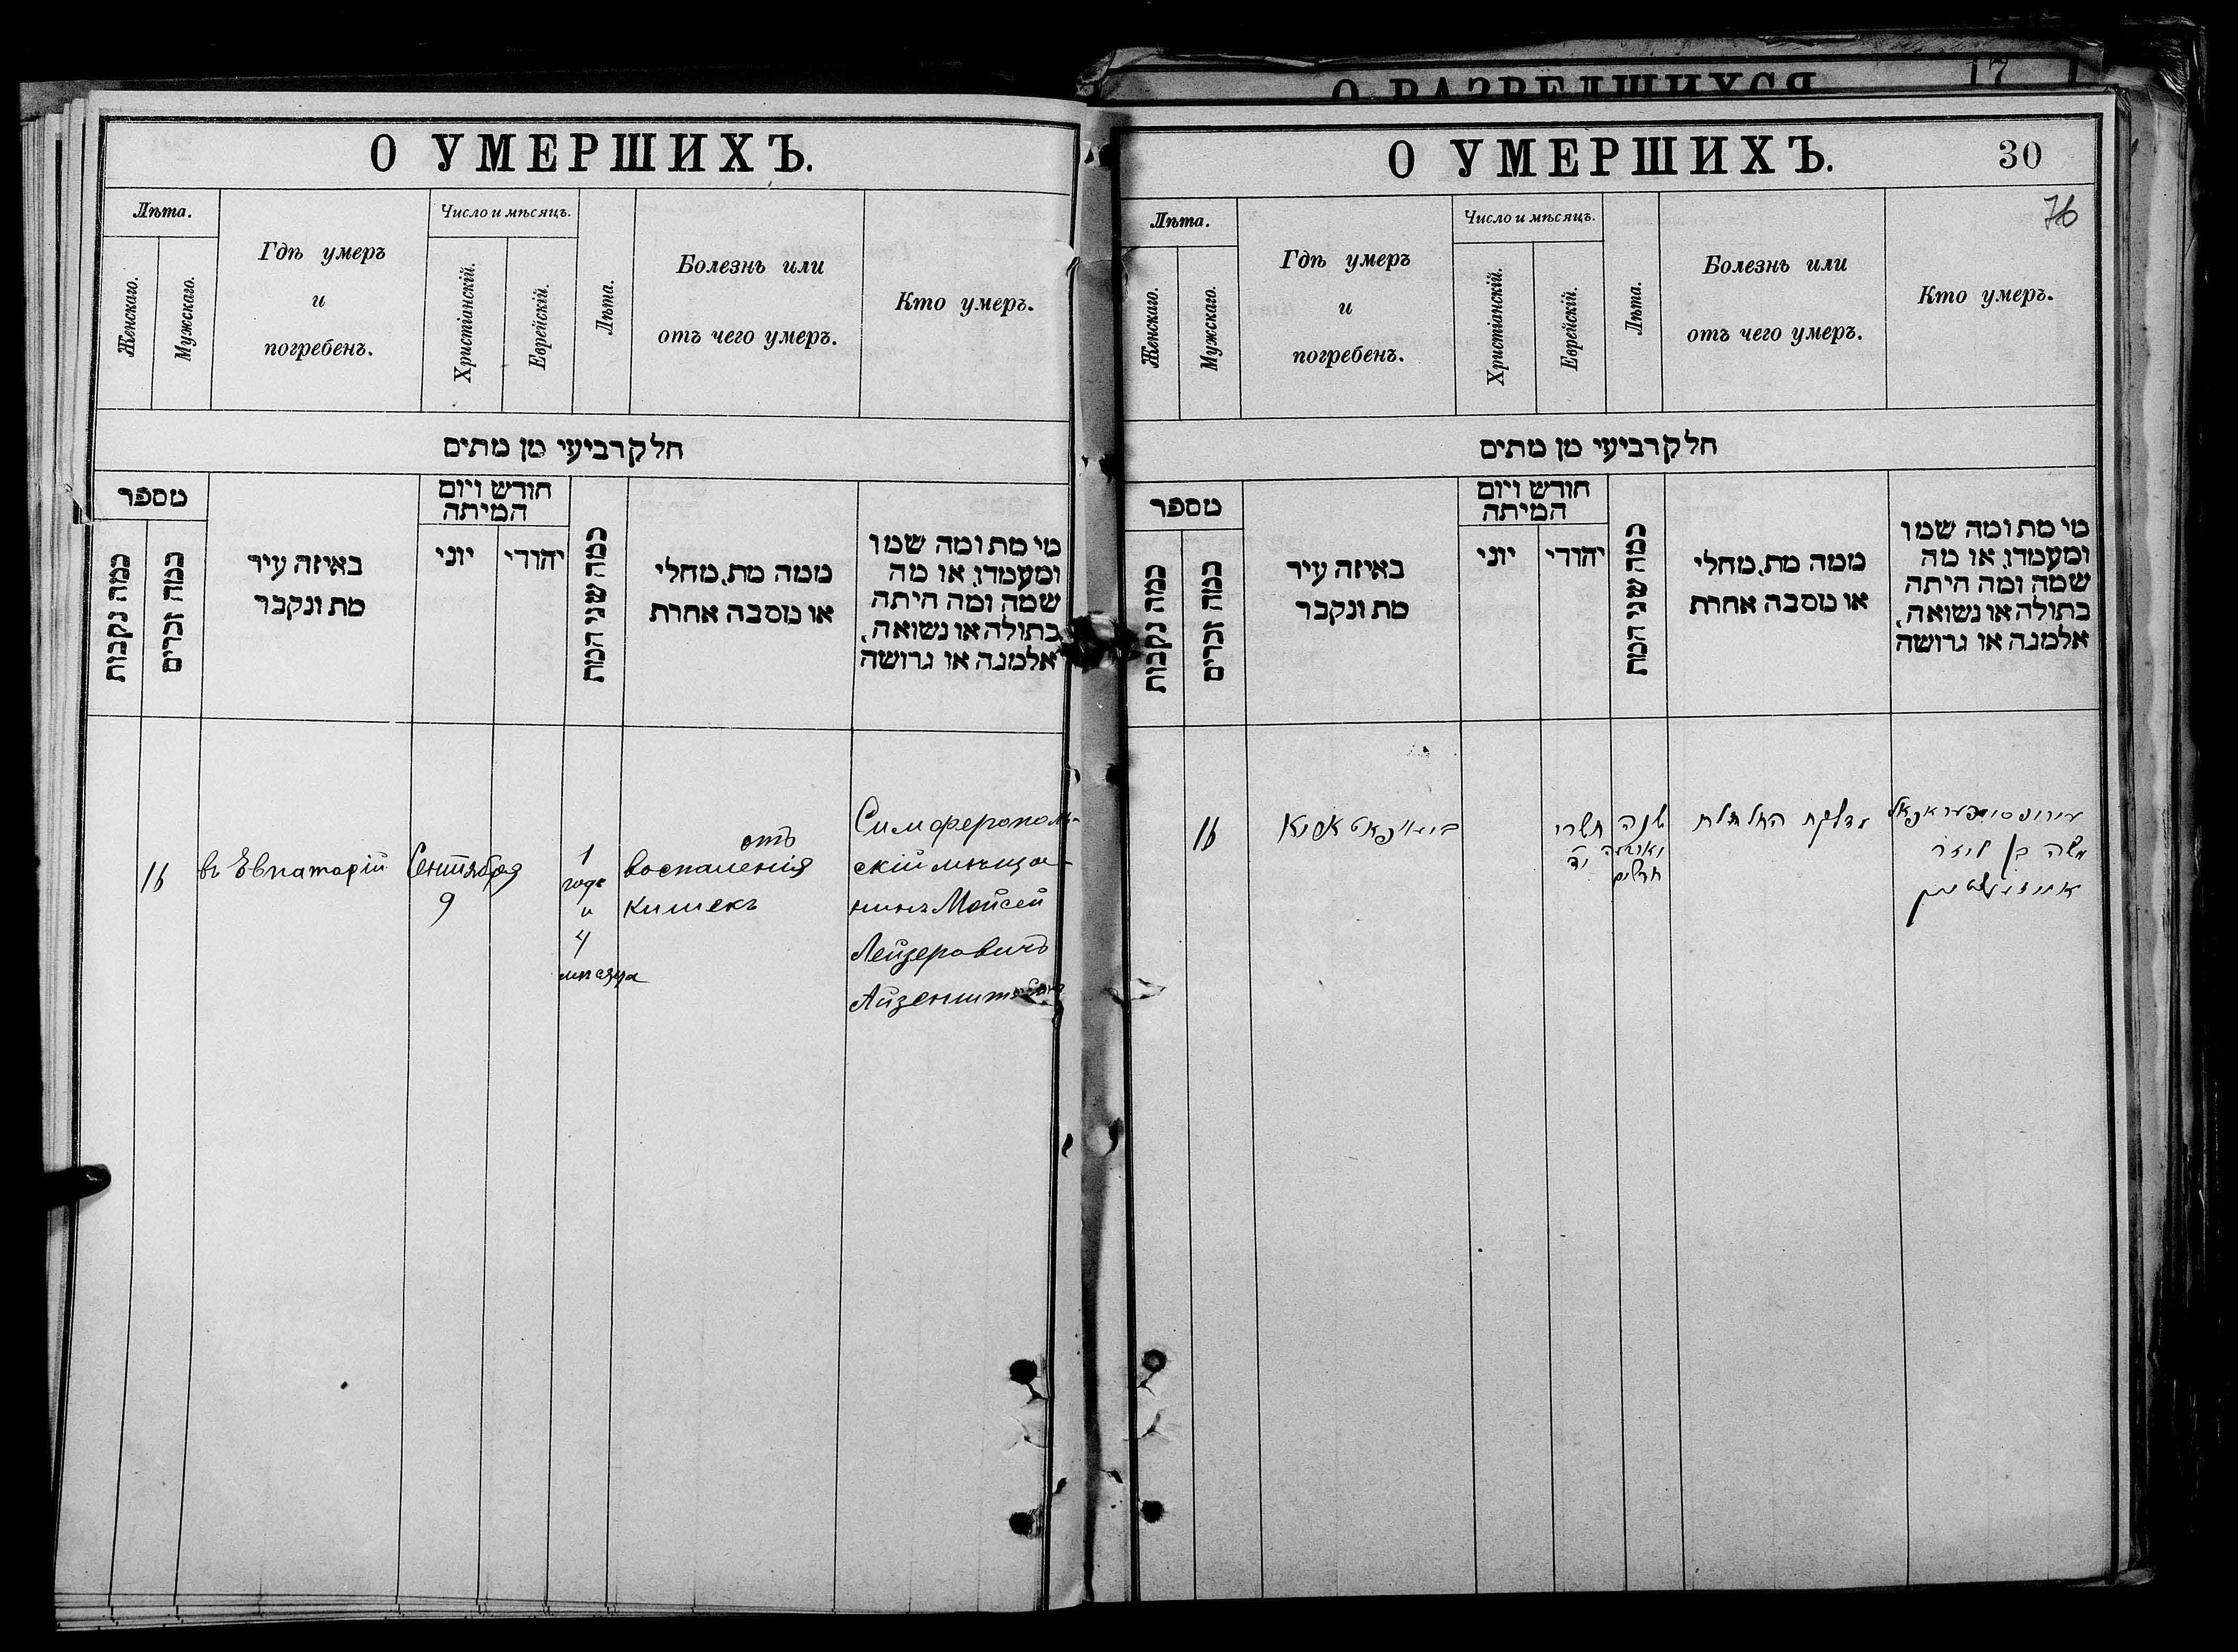 О РАЗВЕДШИХСЯ 17
О УМЕРШИХЪ.
Лѣта.
Женскаго.
Мужскаго.
Гдѣ умеръ
и
погребенъ.
Число и мѣсяцъ.
Христіанскій.
Еврейскій.
Лѣта.
Болезнь или
отъ чего умеръ.
Кто умеръ.
חלק רביעי מן מתים
מספר
כמה נקבות
כמה זכרים
באיזה עיר
מת ונקבר
חודש ויום
המיתה
יוני
יהודי
כמה שני המת
ממה מת, מחלי
או מסבה אחרת
מי מת ומה שמו
ומעמדו, או מה
שמה ומה היתה
בתולה או נשואה,
אלמנה או גרושה
16
въ Евпаторіи
Сентября
9
1
года
и
4
мѣсяца
отъ
воспаленія
кишекъ
Симферополь-
скій мѣща-
нинъ Мойсей
Лейзеровичъ
О УМЕРШИХЪ.
30
76
Лѣта.
Женскаго.
Мужскаго.
Гдѣ умеръ
и
погребенъ.
Число и мѣсяцъ.
Христіанскій.
Еврейскій.
Лѣта.
Болезнь или
отъ чего умеръ.
Кто умеръ.
חלק רביעי מן מתים
מספר
כמה נקבות
כמה זכרים
באיזה עיר
מת ונקבר
חודש ויום
המיתה
יוני
יהודי
כמה שני המת
ממה מת, מחלי
או מסבה אחרת
מי מת ומה שמו
ומעמדו, או מה
שמה ומה היתה
בתולה או נשואה,
אלמנה או גרושה
16
תשרי
יד
שנה
וארבעה
חדשים
משה בן ליזר